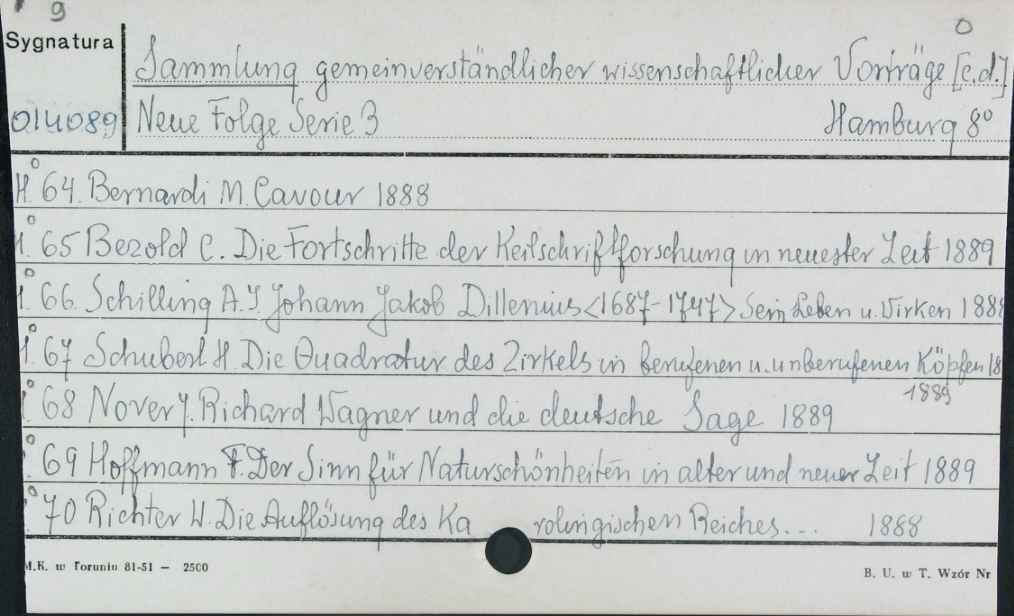 9
O
Sygnatura
Sammlung gemeinverständlicher wissenschaftlicher Vorträge [e.d.]
014089 Neue Folge Serie 3 Hamburg 8°
H.° 64. Bernardi M. Cavour 1888
H.° 65 Bezold C. Die Fortschritte der Keilschriftforschung in neuester Zeit 1889
H.° 66. Schilling A.J. Johann Jakob Dillenius <1687-1747> Sein Leben u. Wirken 1889
H.° 67 Schubert H. Die Quadratur des Zirkels in berufenen u. unberufenen Köpfen 18
1889
° 68 Nover J. Richard Wagner und die deutsche Sage 1889
° 69 Hoffmann F. Der Sinn für Naturschönheiten in alter und neuer Zeit 1889
° 70 Richter W. Die Auflösung des Karolingischen Reiches... 1888
M.K. w Toruniu 81-51 — 2500
B. U. w T. Wzór Nr